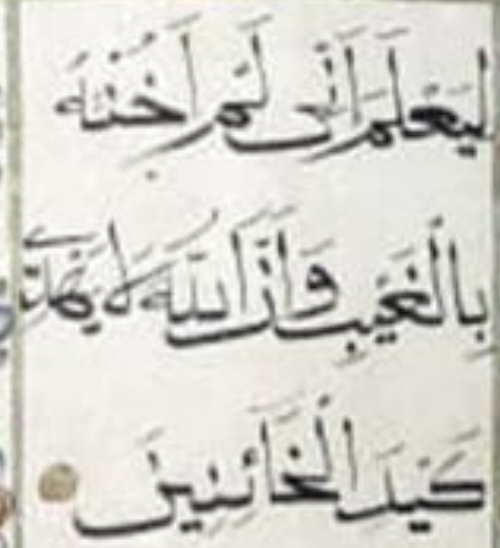 لِيَعْلَمَ اَنّٖى لَمْ اَخُنْهُ
بِالْغَيْبِ وَاَنَّ اللّٰهَ لَا يَهْدٖى
كَيْدَ الْخَائِنٖينَ